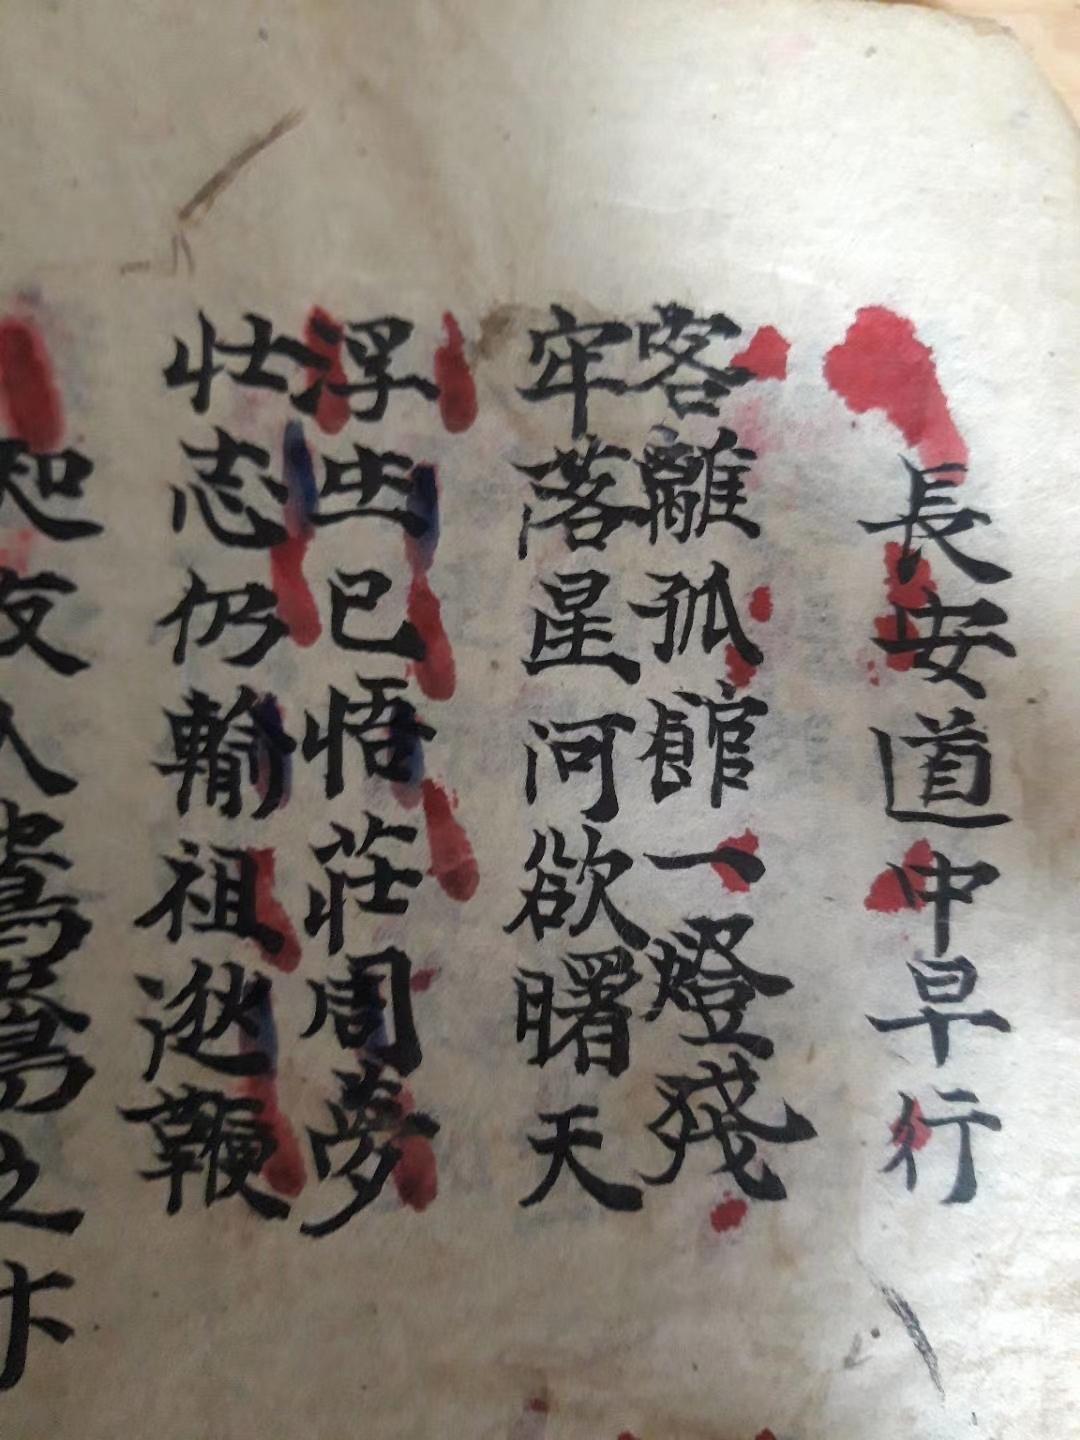 長安道中早行
客離孤館一燈殘
牢落星河欲曙天
浮世已悟莊周夢
壯志仍輸祖逖鞭
知友人
之汴